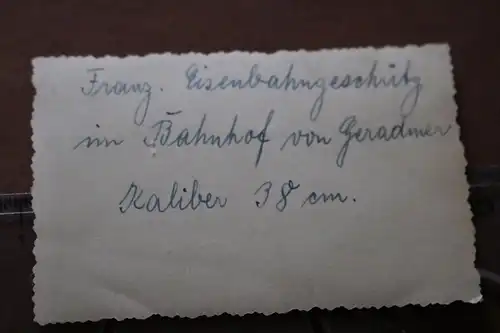 Franz. Eisenbahngeschütz
im Bahnhof von Geradmer
Kaliber 38 cm.